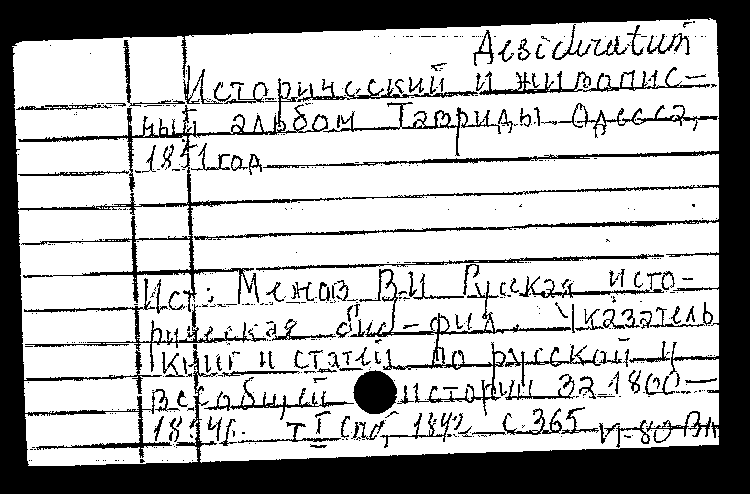 Desideratum
Исторический и живопис-
ный альбом Тавриды Одесса,
1851 год
Ист: Межов В.И Русская исто-
рическая биб-фия. Указатель
книг и статей по русской и
всеобщей истории за 1800-
1854г. т I Спб, 1892 с. 365 И-80 Вл